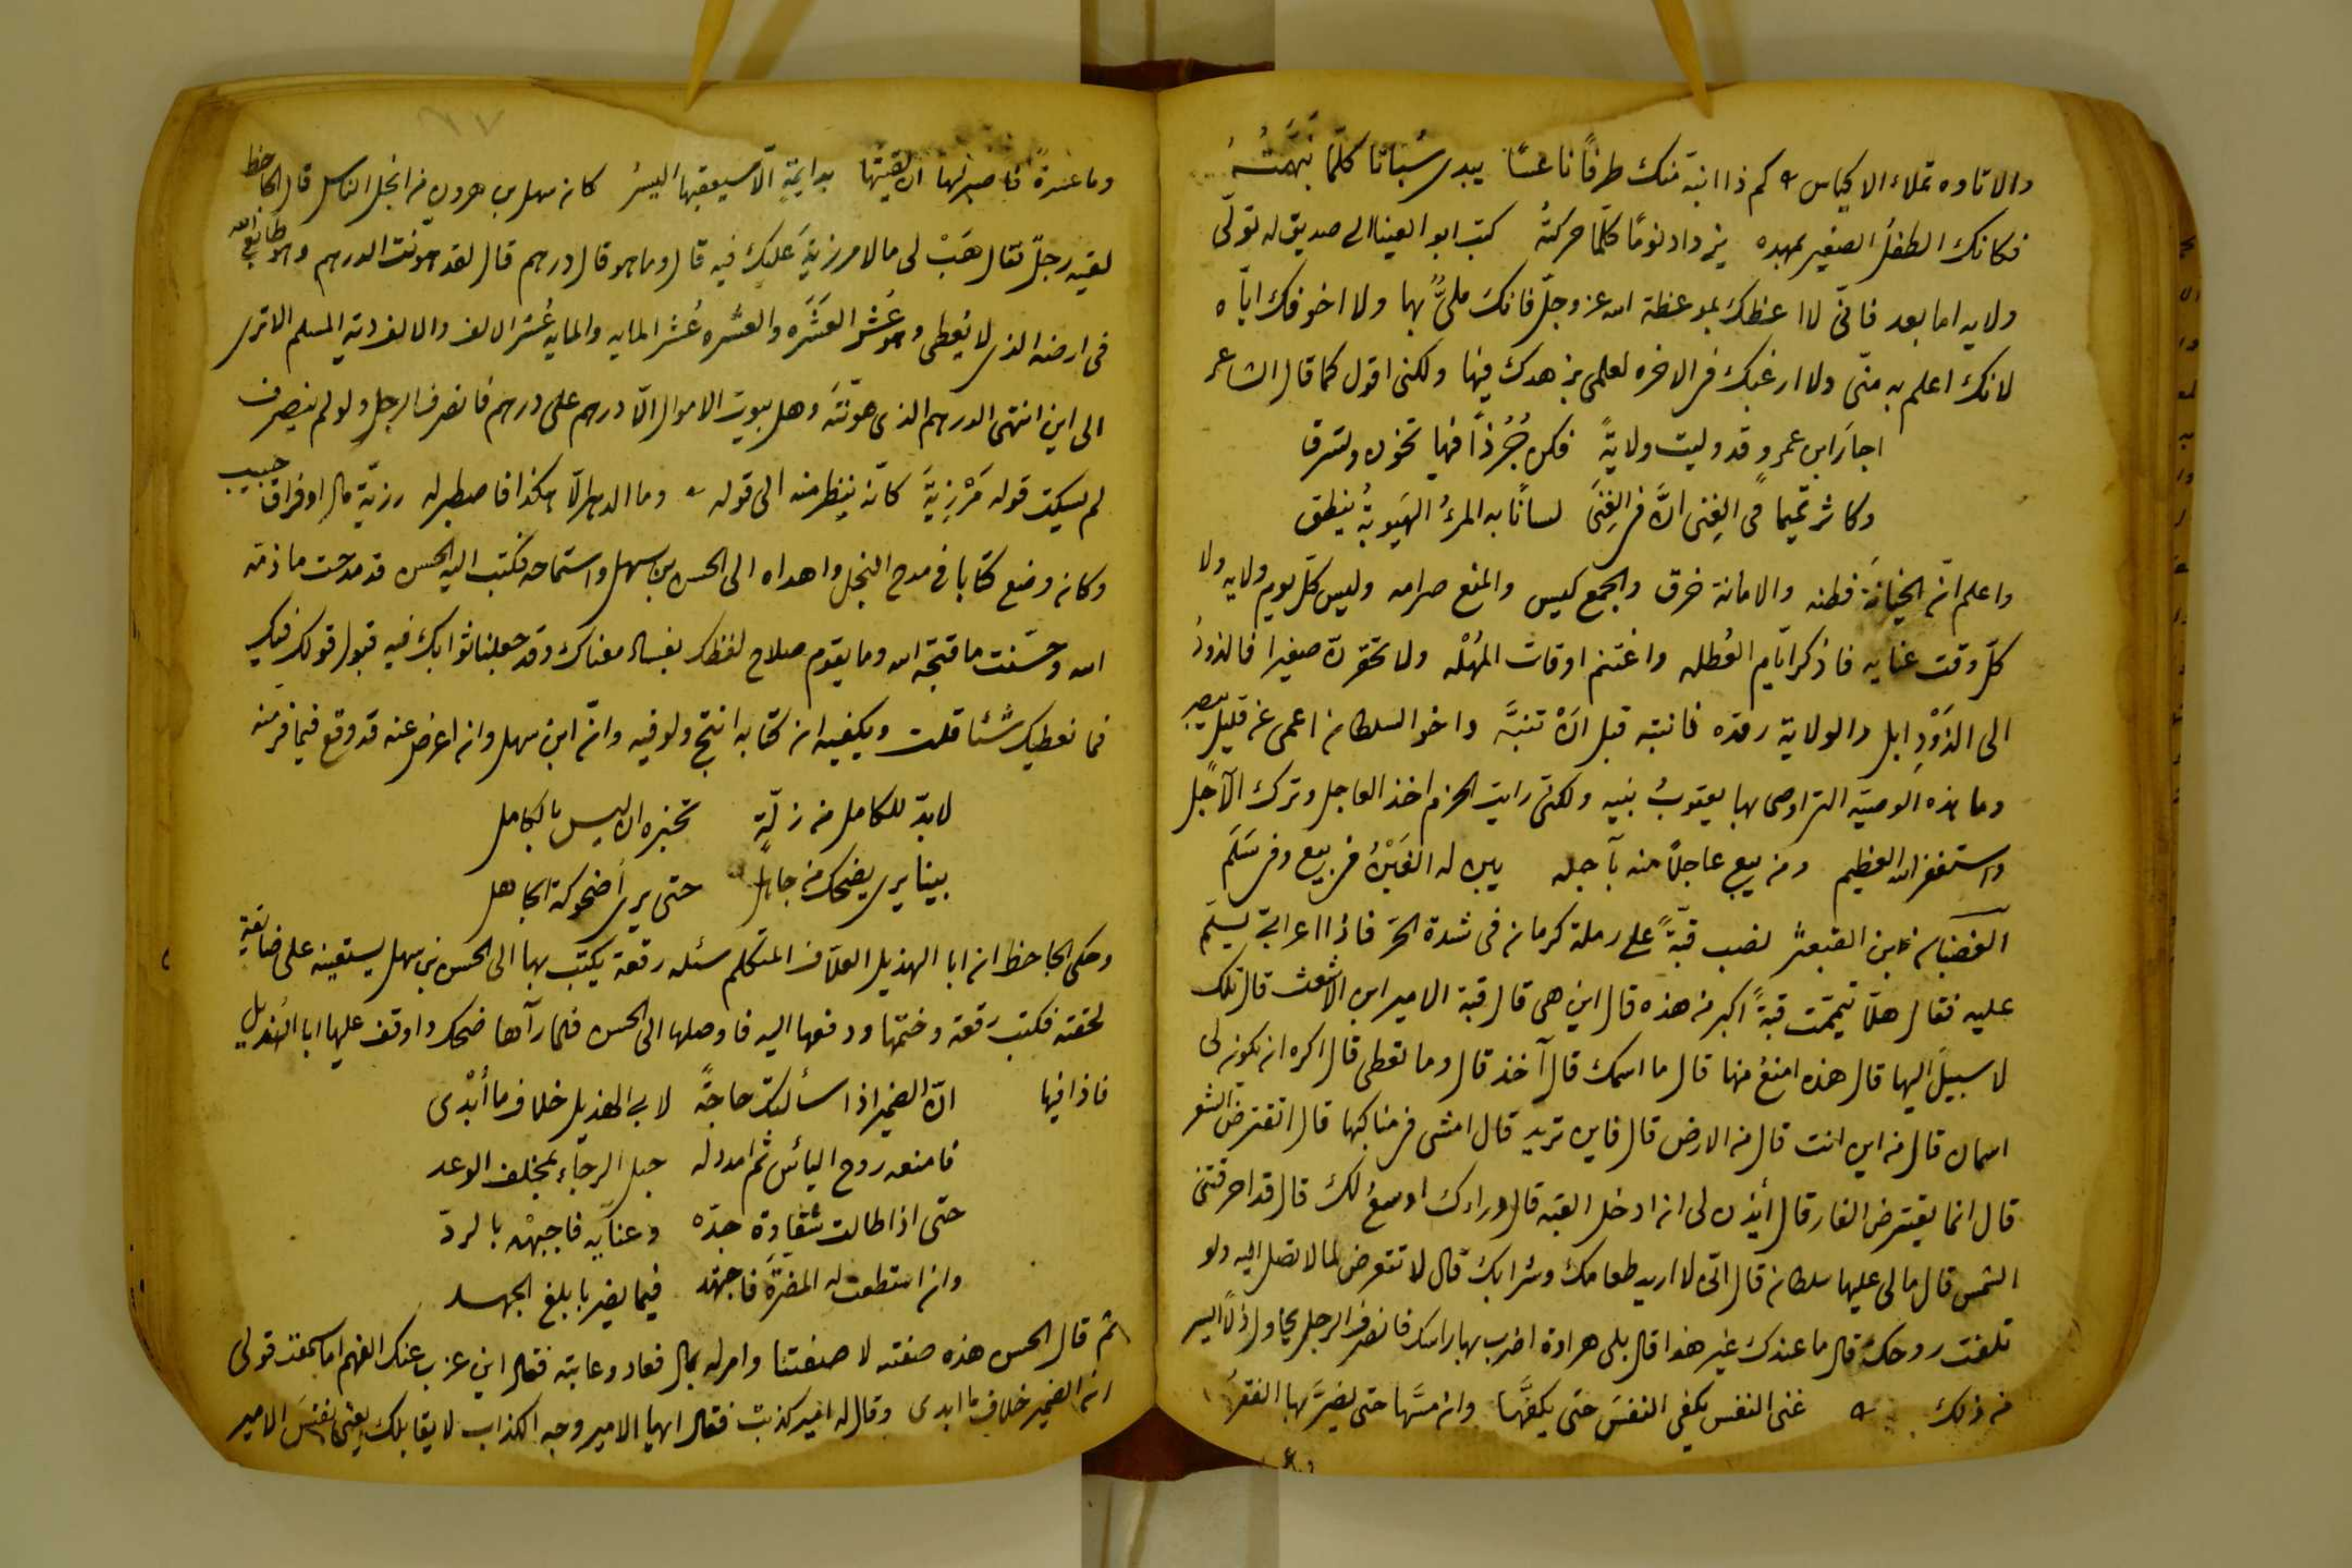 والاتاوه تملاء الاكياس كم ذا انبّه منك طرفًا ناعسًا يبدى سُباتا كلّما نبّهتُهُ
فكانك الطفلُ الصغير بمهده يزداد نومًا كلّما حركتُهُ كتب ابو العينا الى صديق له تولّى
ولايه اما بعد فانّى لا اعظك بموعظة الله عز وجلّ فانك ملىٌّ بها ولا اخوفك اياه
لانك اعلم به منّى ولا ارغبك فى الاخره لعلمى بزهدك فيها ولكنى اقول كما قال الشاعر
اجارَ ابن عمرو قد وليت ولايةً فكن جُرُذًا فيها تخون وتسرق
وكاثر تميما فى الغِنى انّ فى الغِنَى لسانًا به المرءُ الهَيوبةُ ينطق
واعلم انّ الخيانةَ فطنه والامانة خرق والجمع كيس والمنع صرامه وليس كلّ يوم ولايه ولا
كلّ وقت عنايه فاذكر ايّام العُطله واغتنم اوقات المهْله ولا تحقرن صغيرا فالذودُ
الى الذَوْدِ ابل والولاية رقده فانتبه قبل انْ تنبّه واخو السلطان اعمى عن قليل يبصر
وما هذه الوصيّه التى اوصى بها يعقوبُ بنيه ولكنّى رايت الحزم اخذ العاجل وترك الآجل
واستغفر الله العظيم ومن يبع عاجلًا منه بآجله يبن له الغَبْنُ فى بيع وفى سَلَم
الغضبان بن القبعثرى نصب قبّةً على رملة كرمان فى شدة الحرّ فاذا اعرابىّ يسلّم
عليه فقال هلّا تيمّمت قبةً اكبر من هذه قال اين هى قال قبة الامير ابن الاشعث قال تلك
لا سبيل اليها قال هذه امنعُ منها قال ما اسمك قال آخذ قال وما تعطى قال اكره ان يكون لى
اسمان قال من اين انت قال من الارض قال فاين تريد قال امشى فى مناكبها قال اتقترض الشعر
قال انما يقترض الفار قال أيذن لى ان ادخل القبه قال وراءك اوسعُ لك قال قد احرقتنى
الشمس قال ما لى عليها سلطان قال انّى لا اريد طعامك وشرابك قال لا تتعرض لما لا تصل اليه ولو
تلفت روحك قال ما عندك غير هذا قال بلى هراوة اضرب بها راسك فانصرف الرجل
من ذلك غنى النفس يكفى النفسَ حتى يكفّها وان مسّها حتى يضرَّ بها الفقرُ
وما عسرةٌ فاصبر لها ان لقيتها بدايمةٍ الّا سيعقبها اليسرُ كان سهل بن هرون من ابخل الناس قال الجاحظ
لقيه رجلٌ فقال هَبْ لى ما لا مرزيةَ عليك فيه قال وما هو قال درهم قال لقد هوّنت الدرهم وهو طابع الله
فى ارضه الذى لا يُعطى وهو عُشر العَشَره والعشره عُشر المايه والمايه عُشر الالف والالف دية المسلم الا ترى
الى اين انتهى الدرهم الذى هوّنتَه وهل بيوت الاموال الّا درهم على درهم فانصرف الرجل ولو لم ينصرف
لم يسكت قوله مَرْزِيَةَ كانّه ينظر منه الى قوله وما الدهر الّا هكذا فاصطبر له رزيّة مال او فراق حبيب
وكان وضع كتابا فى مدح البخل واهداه الى الحسن بن سهل واستماحه فكتب اليه الحسن قد مدحت ما ذمّه
الله وحسّنت ما قبّحه الله وما يقوم صلاح لفظك بفساد معناك وقد جعلنا ثوابك فيه قبول قولك فيك
فما نعطيك شيئًا قلت ويكفيه ان كتابه انتج ولو فيه وانّ ابن سهل وان اعرض عنه قد وقع فيما فرّ منه
لا بدّ للكامل من زلّةٍ تخبره ان ليس بالكامل
بينا يرى يضحك من جاهلٍ حتى يرى اضحوكة الجاهل
وحكى الجاحظ ان ابا الهذيل العلاف المتكلم سئله رقعة يكتب بها الى الحسن بن سهل يستعينه على ضايقةٍ
لحقته فكتب رقعة وختمها ودفعها اليه فاوصلها الى الحسن فلما رآها ضحك واوقف عليها ابا الهُذيل
فاذا فيها انّ الضمير اذا سألتك حاجةً لابى الهذيل خلاف ما أبْدى
فامنعه روح اليأس ثم امدد له حبل الرجاء بمخلف الوعد
حتّى اذا طالت شقاوة جدّه وعنآيه فاجبهْه بالردّ
وان استطعت له المضرّة فاجتهد فيما يضر بابلغ الجهد
ثم قال الحسن هذه صفته لا صفتنا وامر له بمال فعاد وعاتبه فقال اين عزب عنك الفهم اما سمعت قولى
انّ الضمير خلاف ما ابدى وقال له امير كذبت فقال ايها الامير وجه الكذاب لا يقابلك يعنى نفسَ الامير